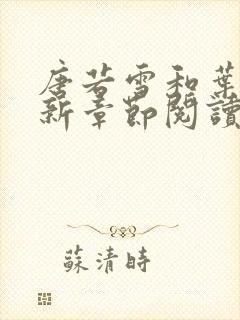 唐若雪和葉
新章節閱讀
蘇清時